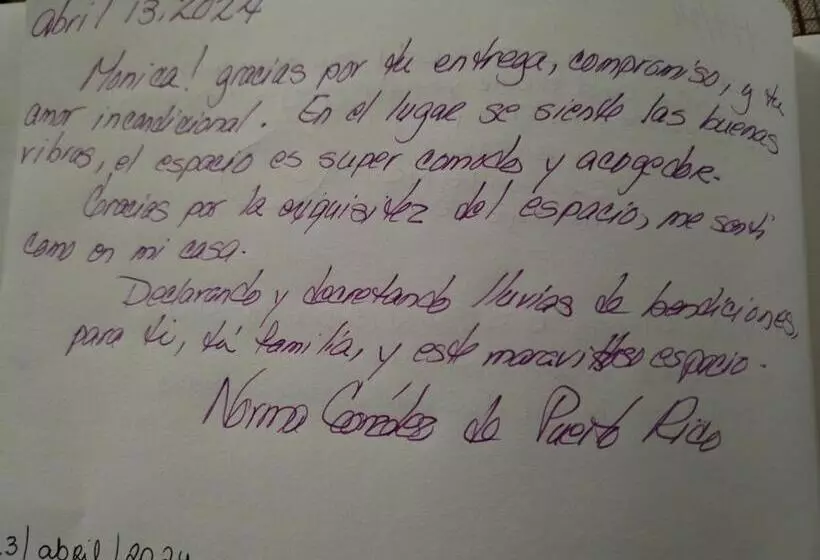 abril 13, 2024
Monica! gracias por tu entrega, compromiso, y tu
amor incondicional. En el lugar se siente las buenas
vibras, el espacio es super comodo y acogedor.
Gracias por la exquisitez del espacio, me sentí
como en mi casa.
Declarando y decretando lluvias de bendiciones,
para ti, tú familia, y este maravilloso espacio.
Norma González de Puerto Rico
3/abril/2024